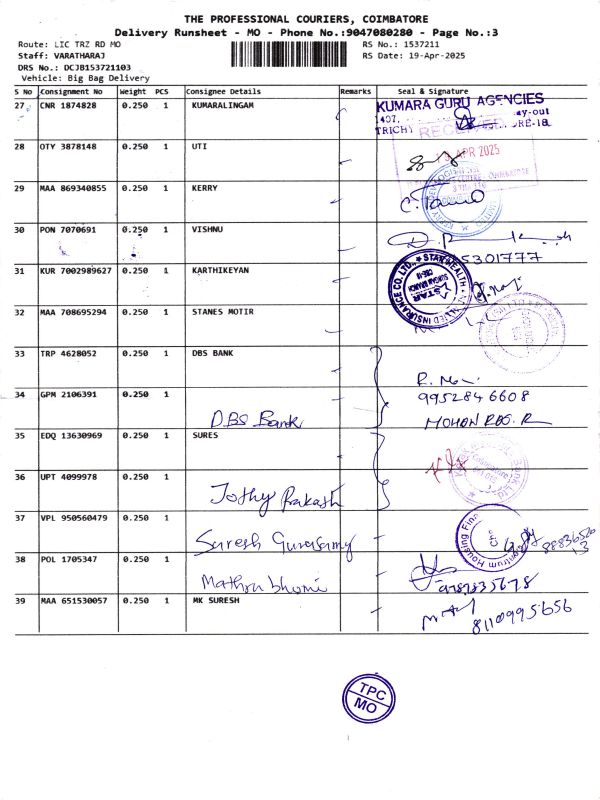 THE PROFESSIONAL COURIERS, COIMBATORE
Delivery Runsheet - MO - Phone No.:9047080280 - Page No.:3
Route: LIC TRZ RD MO RS No.: 1537211
Staff: VARATHARAJ RS Date: 19-Apr-2025
DRS No.: DCJB153721103
Vehicle: Big Bag Delivery
S No Consignment No Weight PCS Consignee Details Remarks Seal & Signature
27 CNR 1874828 0.250 1 KUMARALINGAM KUMARA GURU AGENCIES
1407, ay-out
TRICHY ORE-18
RECEIVED
28 OTY 3878148 0.250 1 UTI
APR 2025
29 MAA 869340855 0.250 1 KERRY
30 PON 7070691 0.250 1 VISHNU
5301777
31 KUR 7002989627 0.250 1 KARTHIKEYAN
STAR HEALTH ALLIED INSURANCE CO. LTD.
STAR
32 MAA 708695294 0.250 1 STANES MOTIR
33 TRP 4628052 0.250 1 DBS BANK
34 GPM 2106391 0.250 1 9952846608
DBS Bank MOHAN RAJ. R
35 EDQ 13630969 0.250 1 SURES
36 UPT 4099978 0.250 1
Jothy Prakash
37 VPL 950560479 0.250 1
Suresh Gurusamy
Centrum Housing Fin
38 POL 1705347 0.250 1
Mathru bhumi 9787835678
39 MAA 651530057 0.250 1 MK SURESH
8110995656
TPC
MO